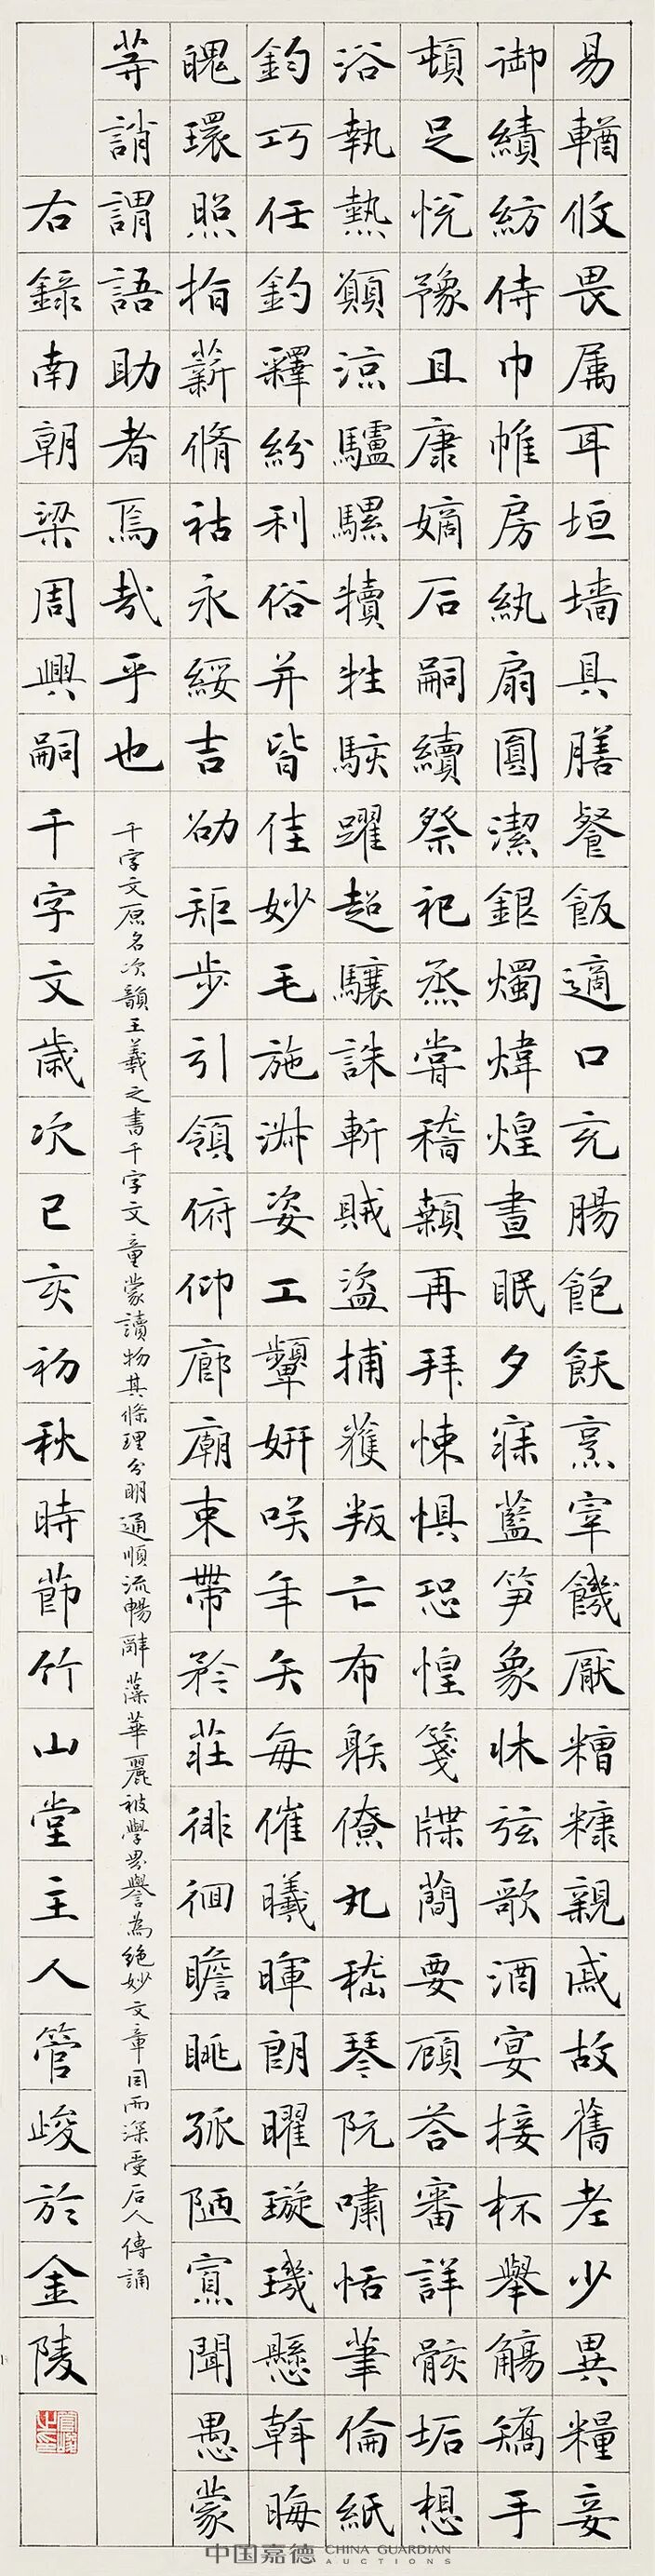 易輶攸畏属耳垣墙具膳餐飯適口充腸飽飫烹宰饑厭糟糠親戚故舊老少異糧妾
御績紡侍巾帷房紈扇圓潔銀燭煒煌晝眠夕寐藍笋象牀弦歌酒宴接杯舉觴矯手
頓足悅豫且康嫡后嗣續祭祀蒸嘗稽顙再拜悚懼恐惶箋牒簡要顧荅審詳骸垢想
浴執熱願涼驢騾犢牲駭躍超驤誅斬賊盜捕獲叛亡布躲僚丸嵇琴阮嘯恬筆倫紙
鈞巧任釣釋紛利俗并皆佳妙毛施淑姿工顰妍咲年矢每催曦暉朗曜璇璣懸斡晦
魄環照指薪脩祜永綏吉劭矩步引領俯仰廊廟束帶矜莊徘徊瞻眺孤陋寡聞愚蒙
等誚謂語助者焉哉乎也
千字文原名次韻王羲之書千字文童蒙讀物其條理分明通順流暢辭藻華麗被學界譽為絶妙文章因而深受后人傳誦
右錄南朝梁周興嗣千字文歲次己亥初秋時節竹山堂主人管峻於金陵
中国嘉德 CHINA GUARDIAN
AUCTIONS